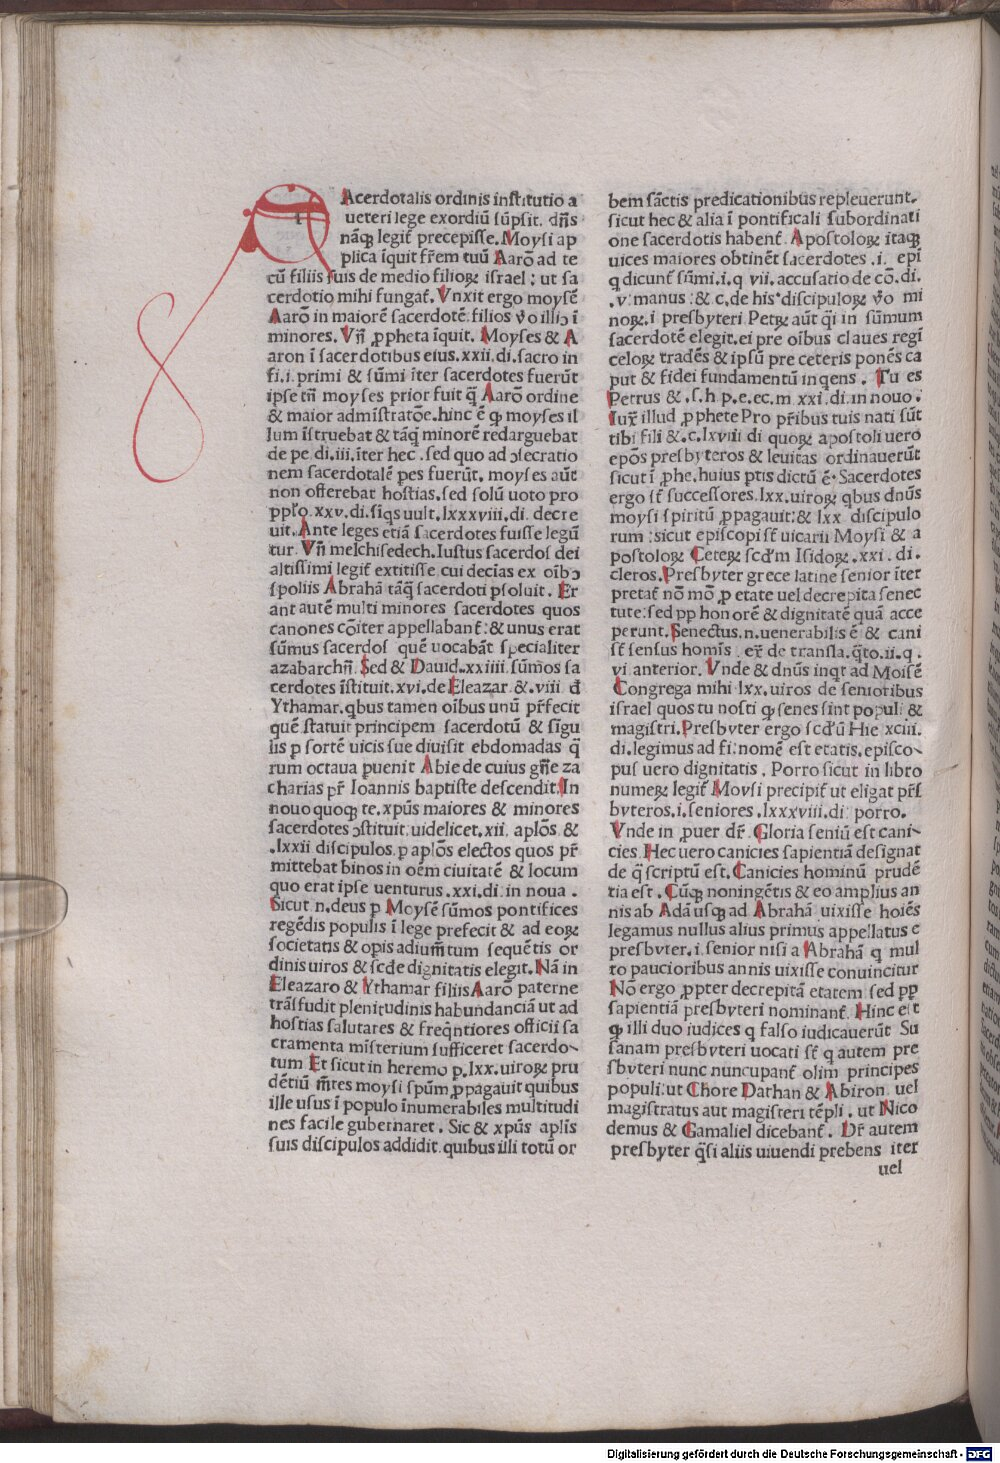 Acerdotalis ordinis institutio a
ueteri lege exordiū sūpsit. dn̄s
nāqꝫ legit̄ precepisse. Moysi ap
plica īquit fr̄em tuū Aarō ad te
cū filiis suis de medio filioꝝ israel: ut sa
cerdotio mihi fungat̄. Vnxit ergo moysē
Aarō in maiorē sacerdotē: filios v̄o illiꝰ ī
minores. Vn̄ ꝓpheta īquit. Moyses & A
aron ī sacerdotibus eius. xxii. di. sacro in
fi. i. primi & sūmi īter sacerdotes fuerūt
ipse tn̄ moyses prior fuit q̄ Aarō ordine
& maior admīstratōe. hinc ē qꝫ moyses il
lum īstruebat & tāq̄ minorē redarguebat
de pe. di. iii. īter hec. sed quo ad ꝯsecratio
nem sacerdotalē pes fuerūt. moyses aūt
non offerebat hostias. sed solū uoto pro
pp̄lo. xxv. di. siqs uult. lxxxviii. di. decre
uit. Ante leges etiā sacerdotes fuisse legū
tur. Vn̄ melchisedech. Iustus sacerdos dei
altissimi legit̄ extitisse. cui decīas ex oībꝰ
spoliis Abrahā tāq̄ sacerdoti ꝑsoluit. Er
ant autē multi minores sacerdotes quos
canones cōiter appellabant̄: & unus erat
sūmus sacerdos quē uocabāt specialiter
azabarchn̄. Sed & Dauid. xxiiii. sūmos sa
cerdotes īstituit. xvi. de Eleazar &. viii. đ
Ythamar. qbus tamen oībus unū pr̄fecit
quē statuit principem sacerdotū & sīgu
lis ꝑ sortē uicis sue diuisit ebdomadas q̄
rum octaua ꝑuenit Abie de cuius gn̄e za
charias pr̄ Ioannis baptiste descendit. In
nouo quoqꝫ te. xp̄us maiores & minores
sacerdotes ꝯstituit. uidelicet. xii. aplōs &
.lxxii discipulos. ꝑ aplōs electos quos pr̄
mittebat binos in oēm ciuitatē & locum
quo erat ipse uenturus. xxi. di. in noua.
Sicut. n. deus ꝑ Moysē sūmos pontifices
regēdis populis ī lege prefecit & ad eoꝝ
societatis & opis adium̄tum sequētis or
dinis uiros & scd̄e dignitatis elegit. Nā in
Eleazaro & Ythamar filiis Aarō paterne
trāsfudit plenitudinis habundanciā ut ad
hostias salutares & freq̄ntiores officii sa
cramenta mīsterium sufficeret sacerdo-
tum Et sicut in heremo ꝑ. lxx. uiroꝝ pru
dētiū m̄tes moysi spūm ꝓpagauit quibus
ille usus ī populo īnumerabiles multitudi
nes facile gubernaret. Sic & xpūs aplis
suis discipulos addidit. quibus illi totū or
bem sāctis predicationibus repleuerunt.
sicut hec & alia ī pontificali subordinati
one sacerdotis habent̄. Apostoloꝝ itaqꝫ
uices maiores obtinēt sacerdotes. i. epī
q dicunt̄ sūmi. i. q vii. accusatio de cō. di.
.v. manus: & c. de his. discipuloꝝ v̄o mi
noꝝ. i presbyteri. Petꝝ aūt q̄i in sūmum
sacerdotē elegit. ei pre oībus claues regī
celoꝝ tradēs & ipsū pre ceteris ponēs ca
put & fidei fundamentū inqens. Tu es
Petrus &. s. h p. e. ec. m. xxi. di. in nouo.
Iux̄ illud ꝓphete Pro pr̄ibus tuis nati sūt
tibi fili &. c. lxviii di quoꝝ apostoli uero
epōs presbyteros & leuitas ordinauerūt
sicut ī ꝓphe. huius ptis dictū ē. Sacerdotes
ergo st̄ successores. lxx. uiroꝝ qbus dnūs
moysi spiritū ꝓpagauit: & lxx discipulo
rum: sicut episcopi st̄ uicarii Moysi & a
postoloꝝ Ceteꝝ scd'm Isidoꝝ. xxi. di.
cleros. Presbyter grece latine senior īter
pretat̄ nō mō ꝓ etate uel decrepita senec
tute: sed pp honorē & dignitatē quā acce
perunt. Senectus. n. uenerabilis ē & cani
st̄ sensus homīs. ex̄ de transla. q̄to. ii. q.
vi anterior. Vnde & dnūs inqt ad Moisē
Congrega mihi lxx. uiros de senioribus
israel quos tu nosti qꝫ senes sint populi &
magistri. Presbyter ergo scd'ū Hie xciii.
di. legimus ad fi: nomē est etatis. episco-
pus uero dignitatis. Porro sicut in libro
numeꝝ legit̄ Moysi precipit̄ ut eligat pr̄s
byteros. i. seniores. lxxxviii. di. porro.
Vnde in ꝓuer dr̄. Gloria seniū est cani-
cies. Hec uero canicies sapientiā designat
de q̄ scriptū est. Canicies hominū prudē
tia est. Cūqꝫ noningētis & eo amplius an
nis ab Adā usqꝫ ad Abrahā uixisse hoiēs
legamus nullus alius primus appellatus e
presbyter. i. senior nisi a Abrahā q mul
to paucioribus annis uixisse conuincitur
Nō ergo ꝓpter decrepitā etatem sed pp̄
sapientiā presbyteri nominant̄. Hinc est
qꝫ illi duo iudices q falso iudicauerūt Su
sanam presbyteri uocati st̄ q autem pre
sbyteri nunc nuncupant̄ olim principes
populi: ut Chore Dathan & Abiron. uel
magistratus aut magisteri tēpli. ut Nico
demus & Gamaliel dicebant̄. Dr̄ autem
presbyter q̄si aliis uiuendi prebens iter
uel
Digitalisierung gefördert durch die Deutsche Forschungsgemeinschaft - DFG